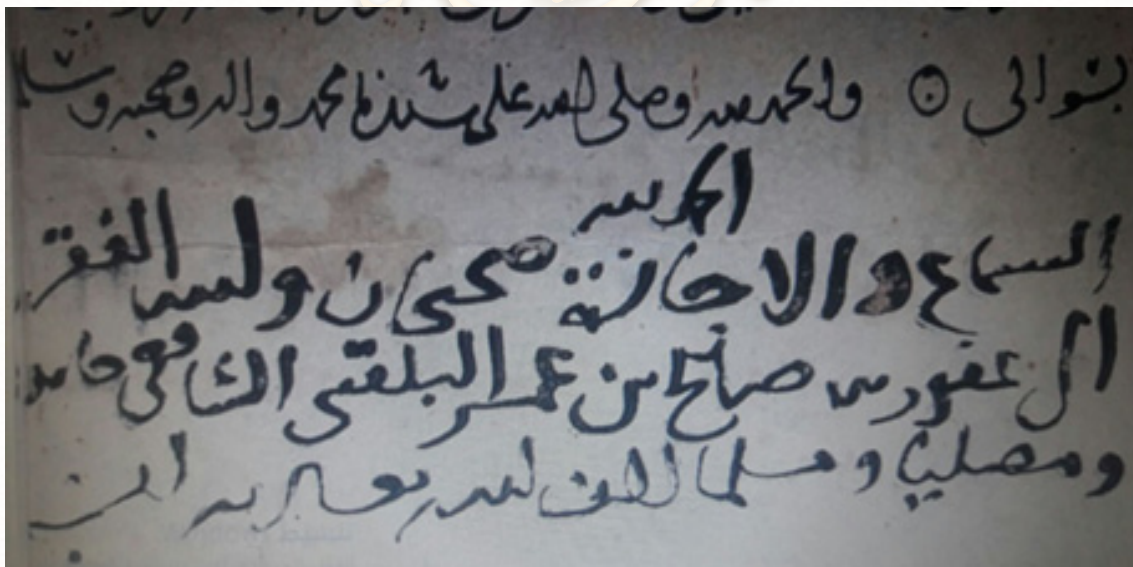 بشوالى ⊙ والحمد لله وصلى الله على سيدنا محمد واله وصحبه وسلم
الحمد لله
السماع والاجازة صحيحان وكتبه الفقير
الى عفو ربه صالح بن عمر البلقينى الشافعى حامدا
ومصليا ومسلما لطف الله تعالى به امين